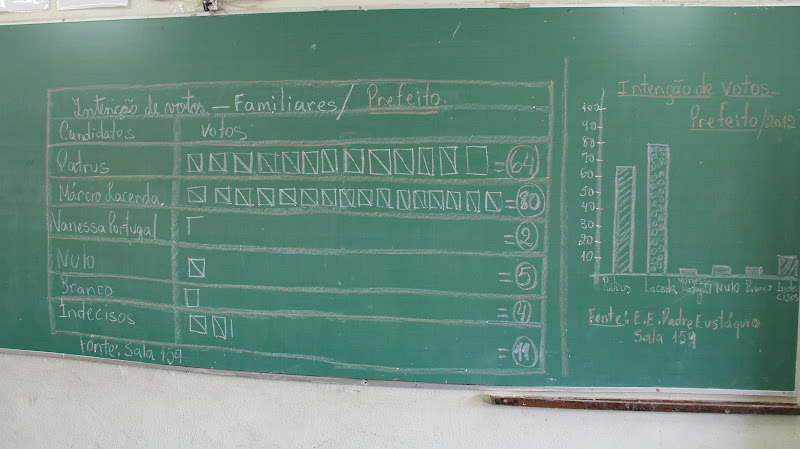 Intenção de votos - Familiares / Prefeito.
Candidatos votos
Patrus = 64
Márcio Lacerda = 80
Vanessa Portugal = 2
Nulo = 5
Branco = 4
Indecisos
= 11
Fonte: Sala 159
Intenção de Votos -
Prefeito/2012
100
90
80
70
60
50
40
30
20
10
Patrus Lacerda Vanessa Portugal Nulo Branco Inde
cisos
Fonte: E.E. Padre Eustáquio
Sala 159